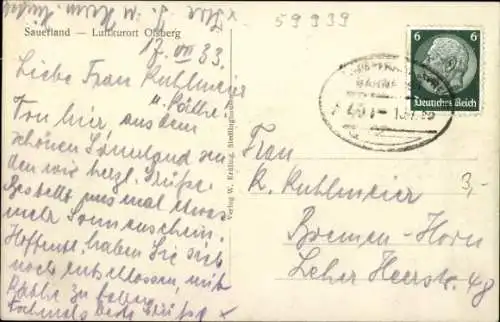 59939
Sauerland — Luftkurort Olsberg
17. VII 33.
Liebe Frau Kuhlmeier
u. Käthe.
Von hier, aus dem
schönen Sauerland sen
den wir herzl. Grüße.
Bestellt uns mal etwas
mehr Sonnenschein.
Hoffentl. haben Sie sich
noch entschlossen, mit
Käthe zu
Nochmals beste Grüße
Verlag W. Kralling, Siedlinghausen
6 6
Deutsches Reich
Frau
K. Kuhlmeier
Bremen-Horn
Leher Heerstr. 48
3,-